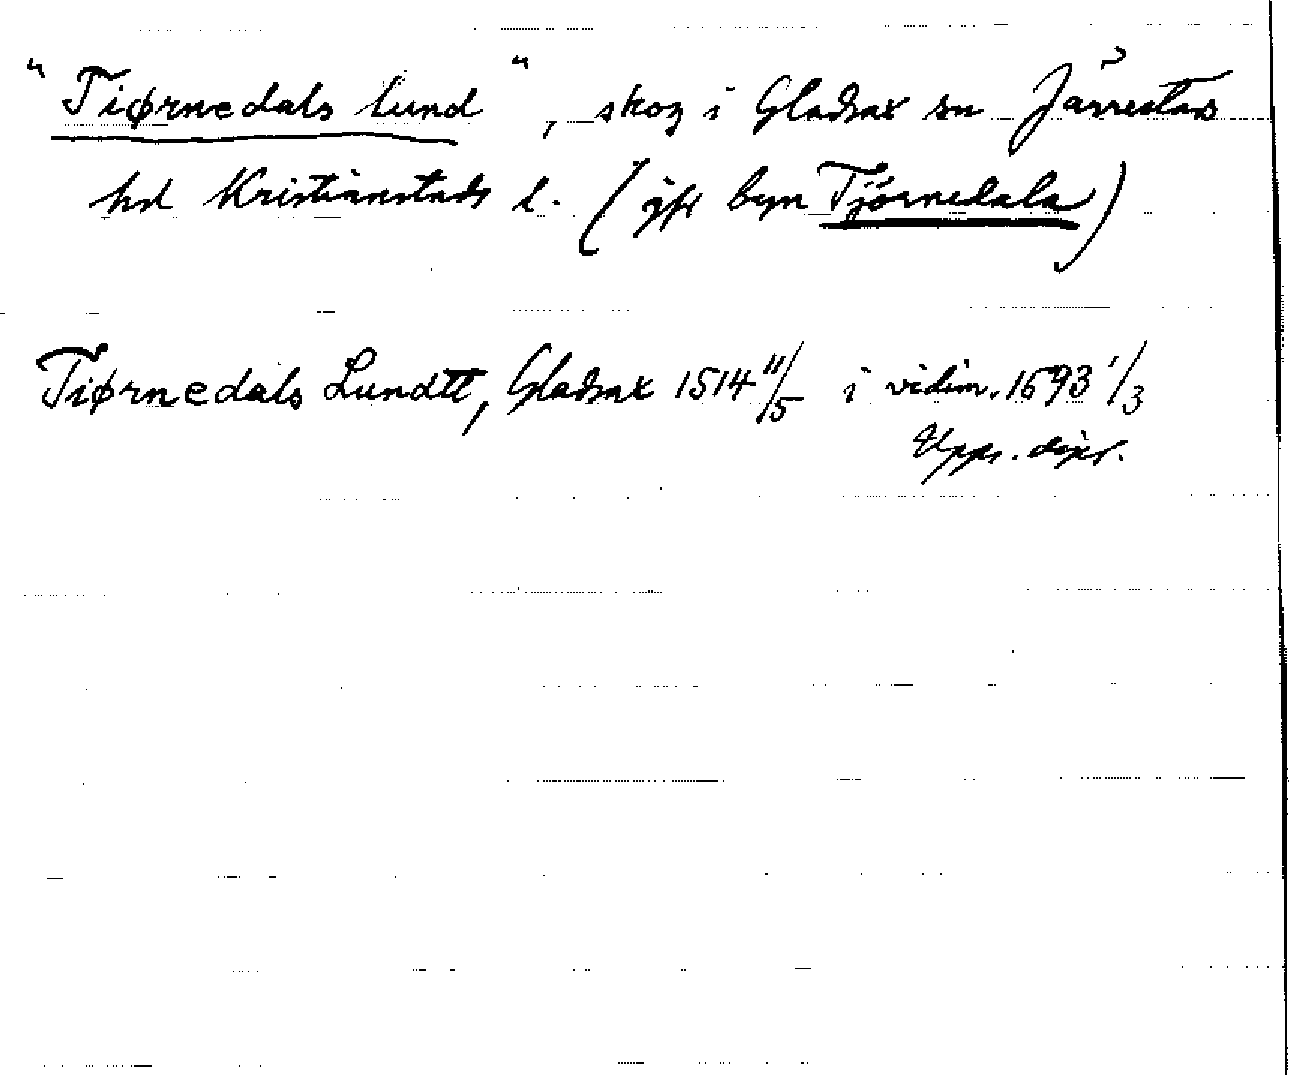 "Tiørnedals lund", skog i Gladsax sn Järrestads
hd Kristianstads l. (jfr byn Tjörnedala)
Tiørnedals Lundtt, Gladsax 1514 11/5 i vidim. 1693 1/3
Upps. dipl.